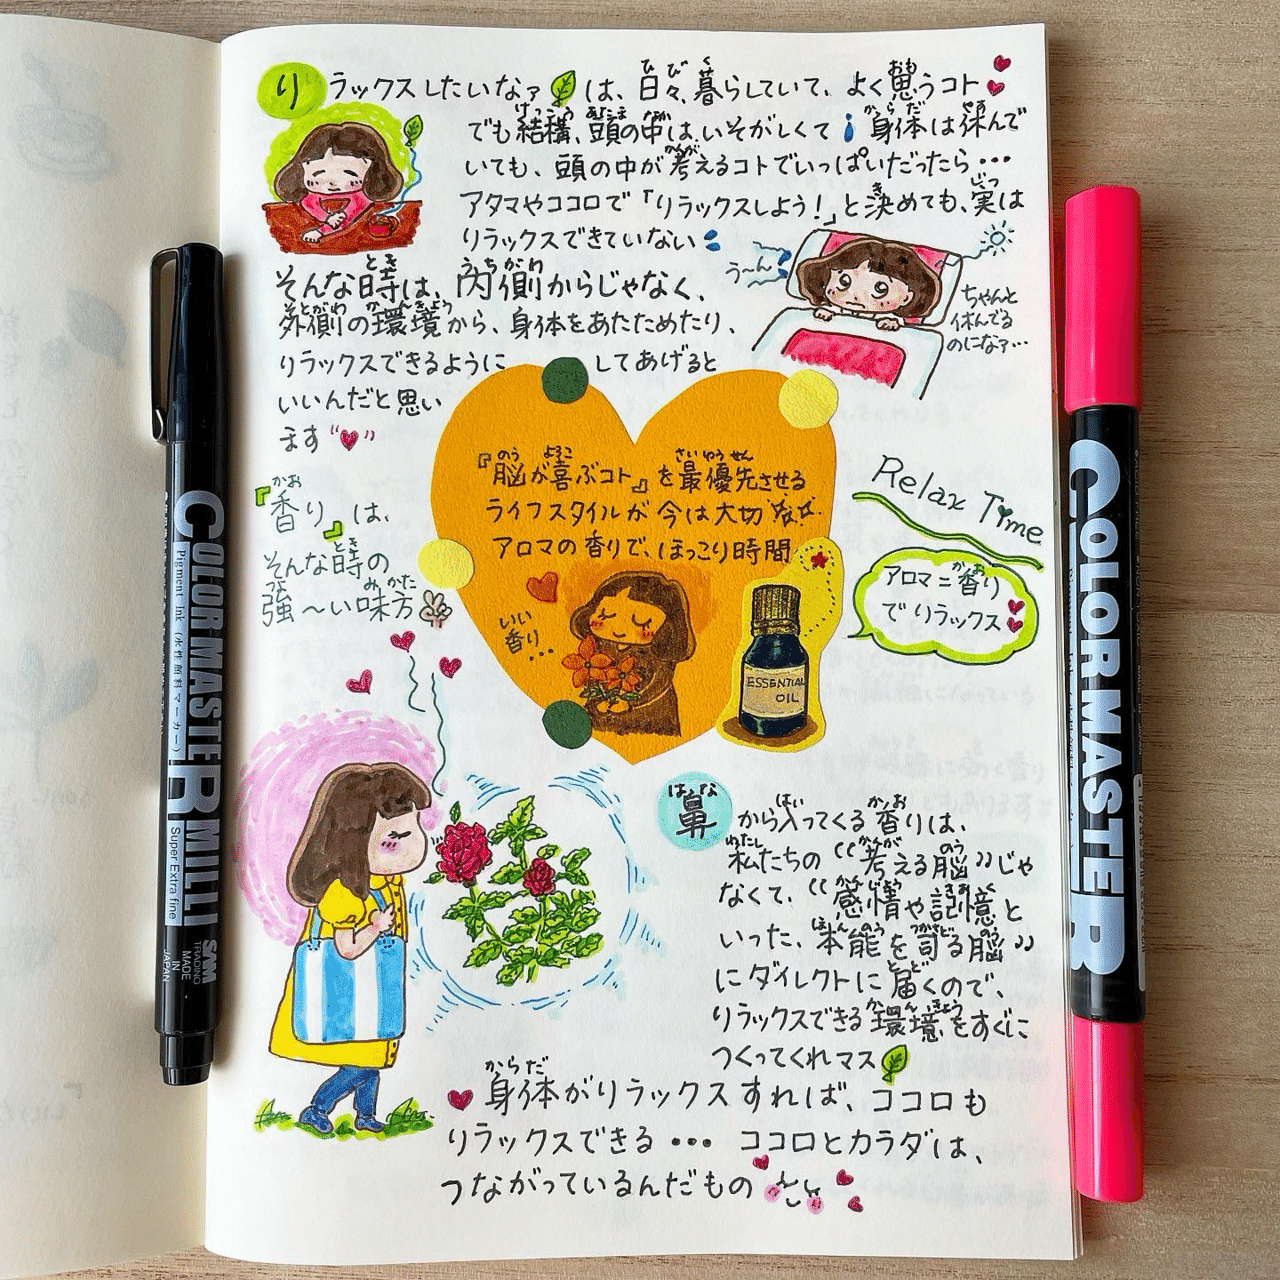 リラックスしたいなァは、日々、暮らしていて、よく思うコト
でも結構、頭の中は、いそがしくて 身体は休んで
いても、頭の中が考えるコトでいっぱいだったら…
アタマやココロで「リラックスしよう!」と決めても、実は
リラックスできていない
う〜ん
ちゃんと
休んでる
のになァ…
そんな時は、内側からじゃなく、
外側の環境から、身体をあたためたり、
リラックスできるように してあげると
いいんだと思い
ます
『脳が喜ぶコト』を最優先させる
ライフスタイルが今は大切
アロマの香りで、ほっこり時間
いい
香り
…
ESSENTIAL
OIL
Relax Time
アロマ=香り
でリラックス
『香り』は、
そんな時の
強〜い味方
鼻から入ってくる香りは、
私たちの“考える脳”じゃ
なくて、“感情や記憶と
いった、本能を司る脳”
にダイレクトに届くので、
リラックスできる環境をすぐに
つくってくれマス
身体がリラックスすれば、ココロも
リラックスできる… ココロとカラダは、
つながっているんだもの
COLORMASTER MILLI
Pigment Ink (水性顔料マーカー)
Super Extra fine
SAM
TRADING
MADE
IN
JAPAN
COLORMASTER B